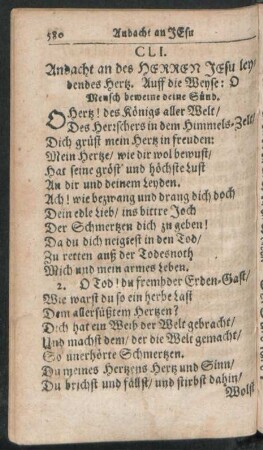 580 Andacht an JEsu
CLI.
Andacht an des HERREN JEsu ley
dendes Hertz. Auff die Weyse: O
Mensch beweine deine Sünd.
O Hertz! des Königs aller Welt/
Des Herrschers in dem Himmels-Zelt/
Dich grüst mein Hertz in freuden:
Mein Hertze/ wie dir wol bewust/
Hat seine gröst' und höchste Lust
An dir und deinem Leyden.
Ach! wie bezwang und drang dich doch
Dein edle Lieb/ ins bittre Joch
Der Schmertzen dich zu geben!
Da du dich neigtest in den Tod/
Zu retten auß der Todesnoth
Mich und mein armes Leben.
2. O Tod! du frembder Erden-Gast/
Wie warst du so ein herbe Last
Dem allersüßtem Hertzen?
Dich hat ein Weib der Welt gebracht/
Und machst dem/ der die Welt gemacht/
So unerhörte Schmertzen.
Du meines Hertzens Hertz und Sinn/
Du brichst und fällst/ und stirbst dahin/
Wolst